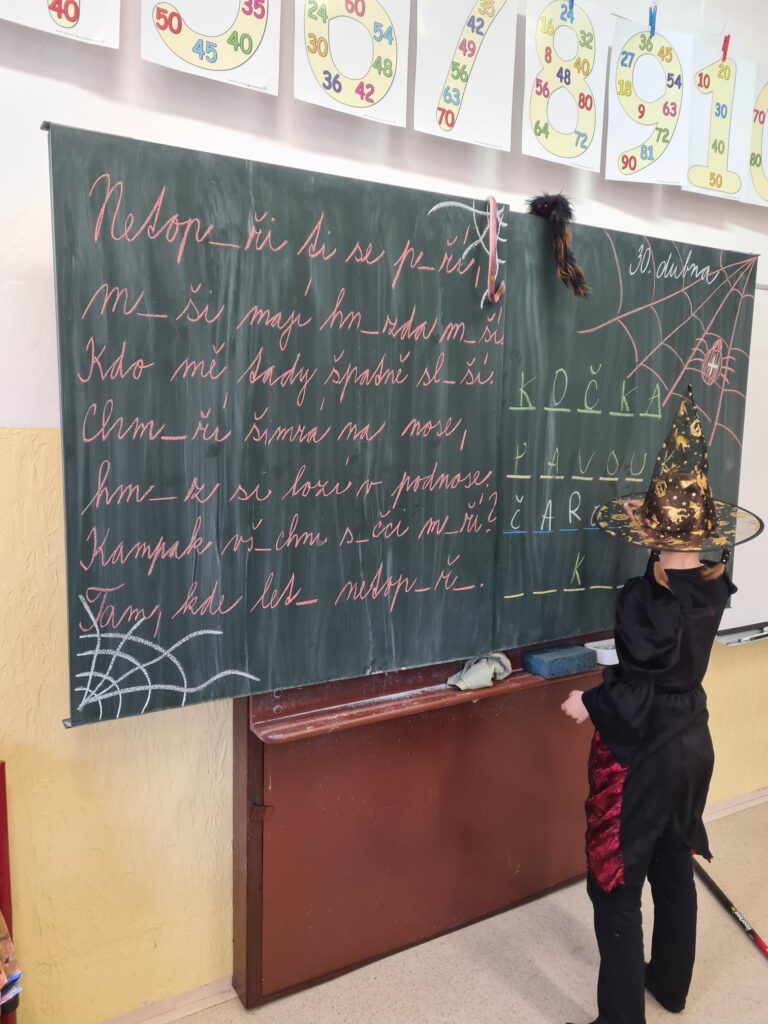 40
50 45 40 35
24 60 54 30 48 36 42
35 42 49 56 63 70
24 16 32 8 48 40 80 56 64 72
36 45 27 54 18 9 63 72 90 81
10 20 30 40 50
70 80
Netop_ři ti se p_ří,
m_ši mají hn_zda m_ší
Kdo mě tady špatně sl_ší.
Chm_ří šimrá na nose,
hm_z si lozí v podnose.
Kampak vš_chni s_čci m_ří?
Tam, kde let_ netop_ř_.
30. dubna
KOČKA
PAVOUK
ČARO
_ _ K _